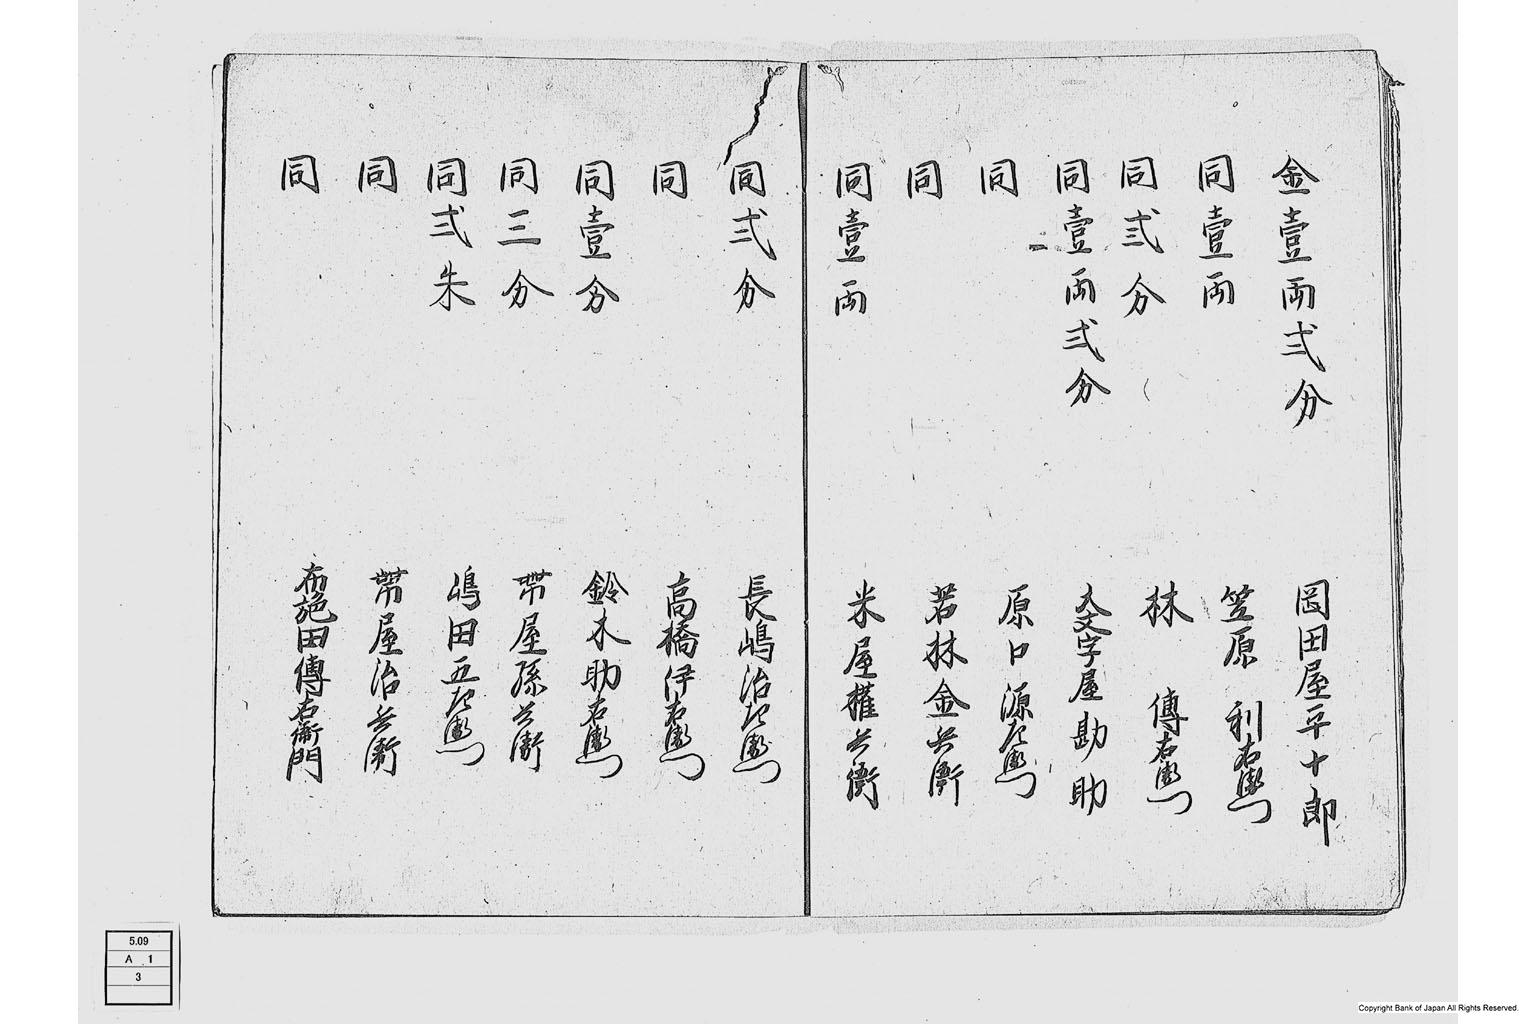 金壹両弐分　岡田屋平十郎
同壹両　笠原利右衛門
同弐分　林傳右衛門
同壹両弐分　大文字屋勘助
同　原口源左衛門
同　若林金兵衛
同壹両　米屋權兵衛
同弐分　長嶋治左衛門
同　高橋伊右衛門
同壹分　鈴木助右衛門
同三分　帯屋孫兵衛
同弐朱　嶋田五左衛門
同　帯屋治兵衛
同　布施田傳右衛門
5.09
A 1
3
Copyright Bank of Japan All Rights Reserved.